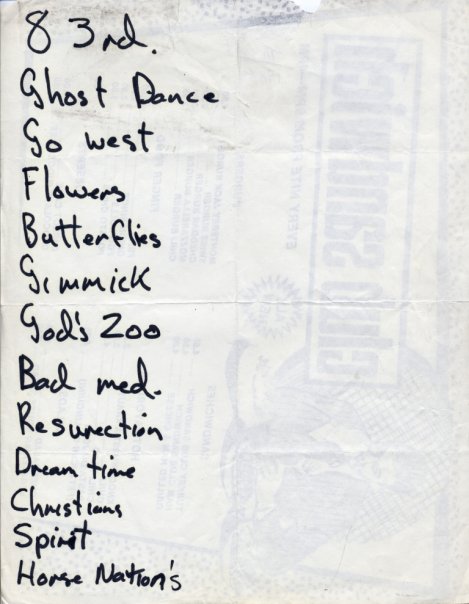 8 3rd.
Ghost Dance
Go west
Flowers
Butterflies
Gimmick
God's Zoo
Bad med.
Resurection
Dream time
Christians
Spirit
Horse Nation's